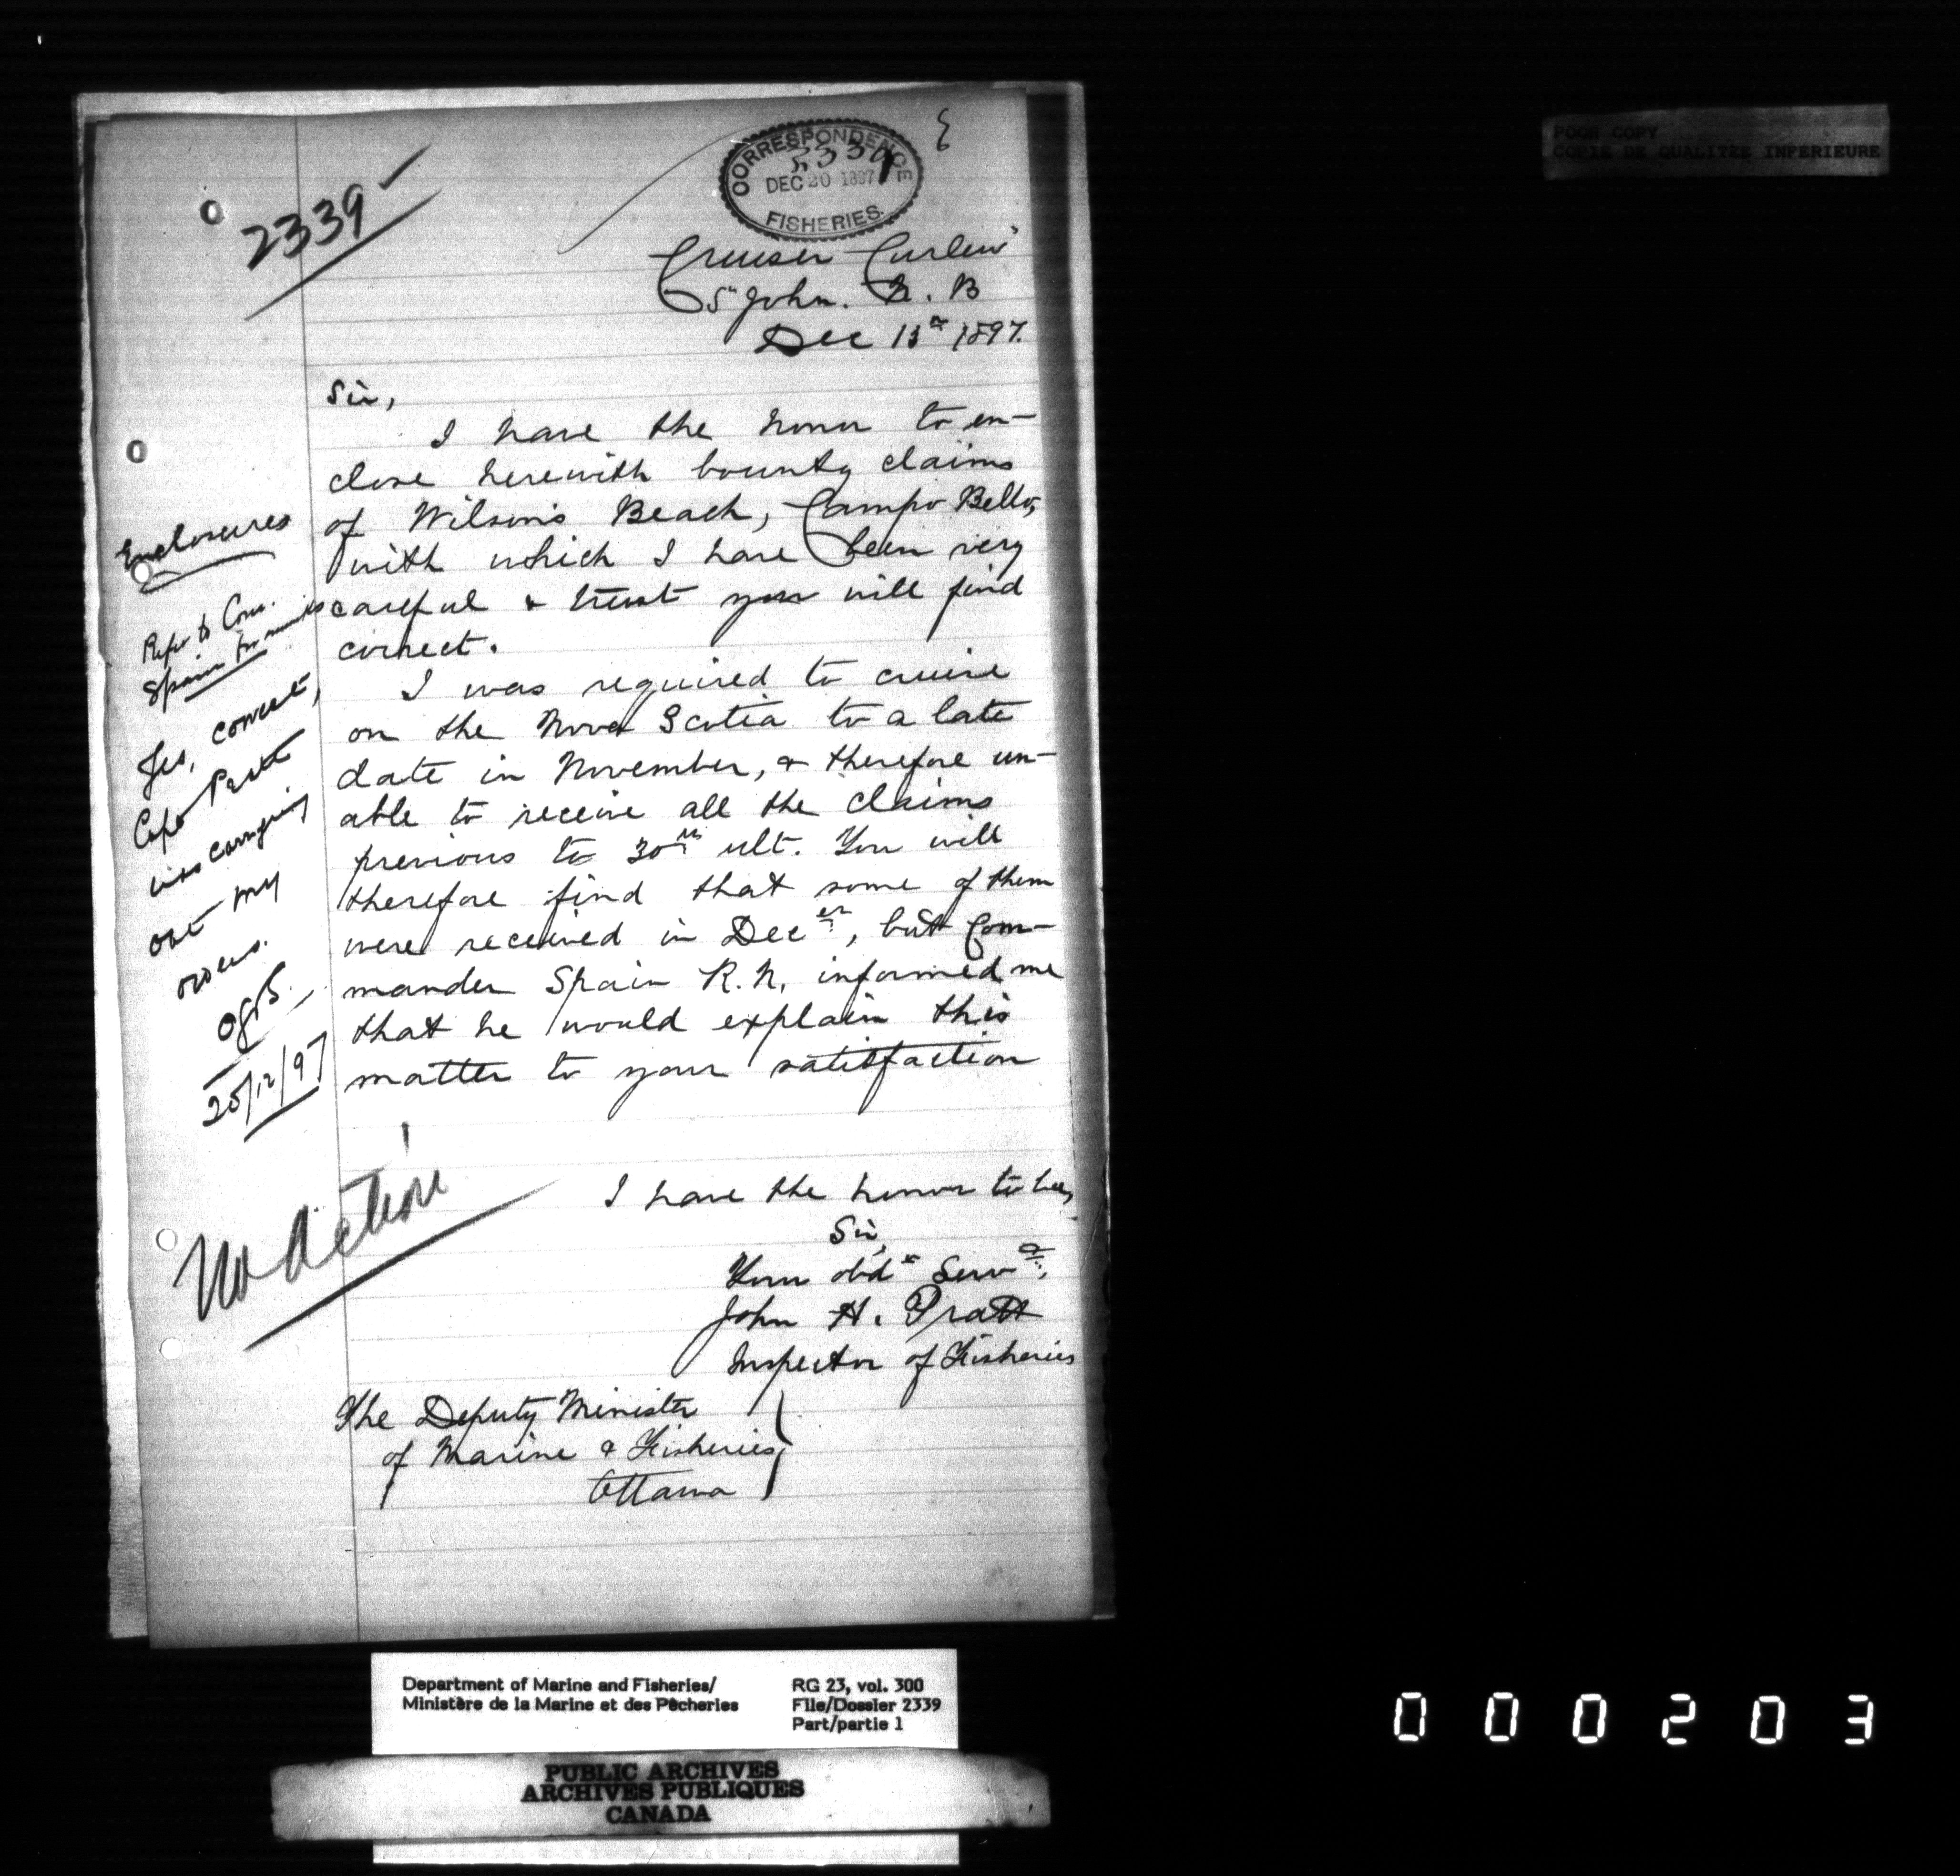 2339
CORRESPONDENCE
DEC 20 1897
FISHERIES.
Cruiser Curlew
St John. N. B
Dec 13th 1897.
Sir,
I have the honor to en-
close herewith bounty claims
of Wilson's Beach, Campo Bello,
with which I have been very
careful & trust you will find
correct.
I was required to cruise
on the Nova Scotia to a late
date in November, & therefore un-
able to receive all the claims
previous to 30th ult. You will
therefore find that some of them
were received in Decer, but Com-
mander Spain R.N. informed me
that he would explain this
matter to your satisfaction
I have the honor to be,
Sir,
Your obdt Servt,
John H. Pratt
Inspector of Fisheries
The Deputy Minister
of Marine & Fisheries,
Ottawa
Enclosures
Refer to Com.
Spain for
Yes, correct,
Capt Pratt
was carrying
out my
orders.
OGVS.
20/12/97
No Action
POOR COPY
COPIE DE QUALITEE INFERIEURE
Department of Marine and Fisheries/
Ministère de la Marine et des Pêcheries
RG 23, vol. 300
File/Dossier 2339
Part/partie 1
PUBLIC ARCHIVES
ARCHIVES PUBLIQUES
CANADA
000203